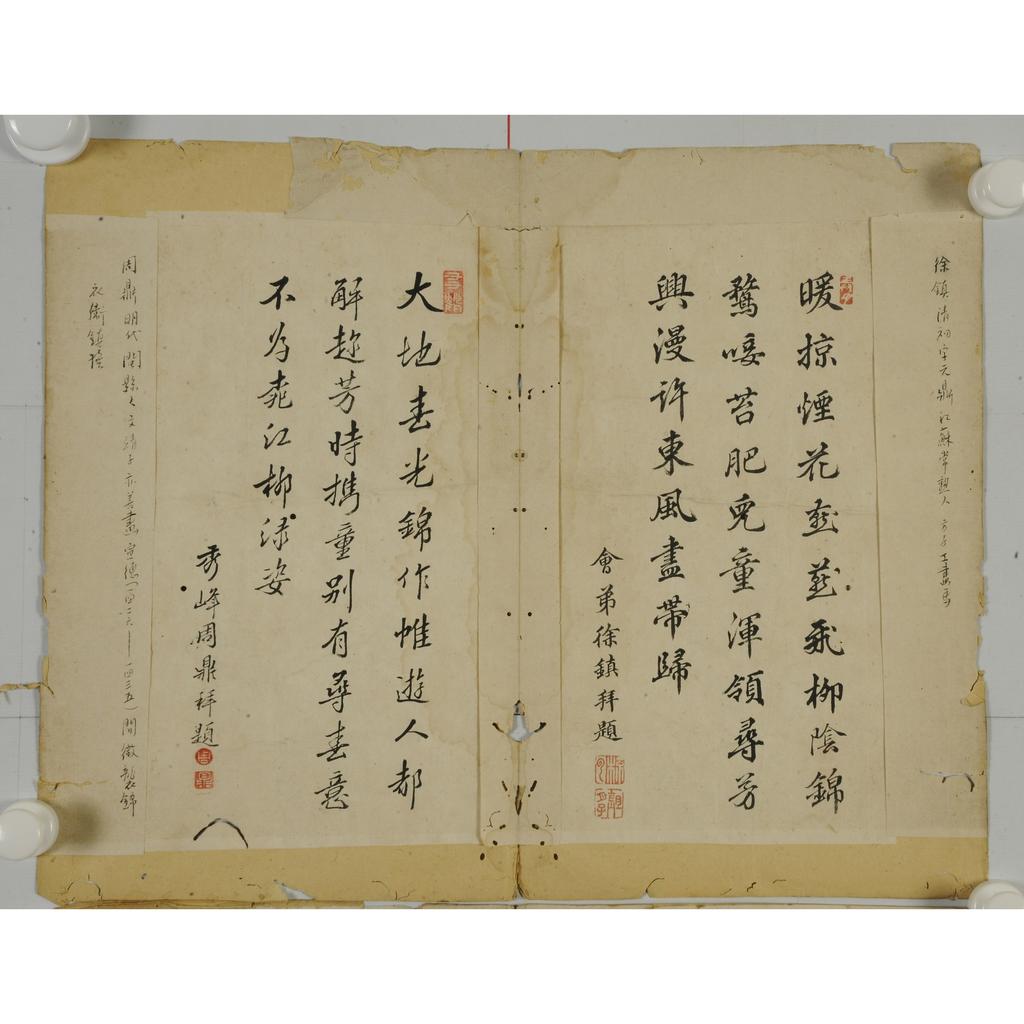 徐鎮清初字元鼎江蘇常熟人
暖掠煙花燕燕飛柳陰錦
鶩唼苔肥兒童渾領尋芳
興漫許東風盡帶歸
會弟徐鎮拜題
大地春光錦作帷遊人都
解趁芳時攜童別有尋春意
不為桃江柳淥姿
秀峰周鼎拜題
周鼎明代閩縣人文靖子亦善畫宣德(一四二六—一四三五)間徵製錦
衣衛鎮撫